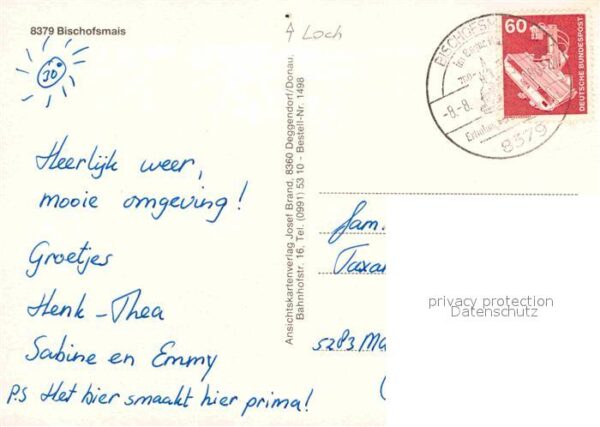 8379 Bischofsmais
30°
Loch
60
DEUTSCHE BUNDESPOST
-8.-8.
8379
Heerlijk weer,
mooie omgeving!
Groetjes
Henk - Thea
Sabine en Emmy
P.S Het bier smaakt hier prima!
Ansichtskartenverlag Josef Brand, 8360 Deggendorf/Donau,
Bahnhofstr. 16, Tel. (0991) 53 10 - Bestell-Nr. 1498
fam.
5283 Ma
privacy protection
Datenschutz